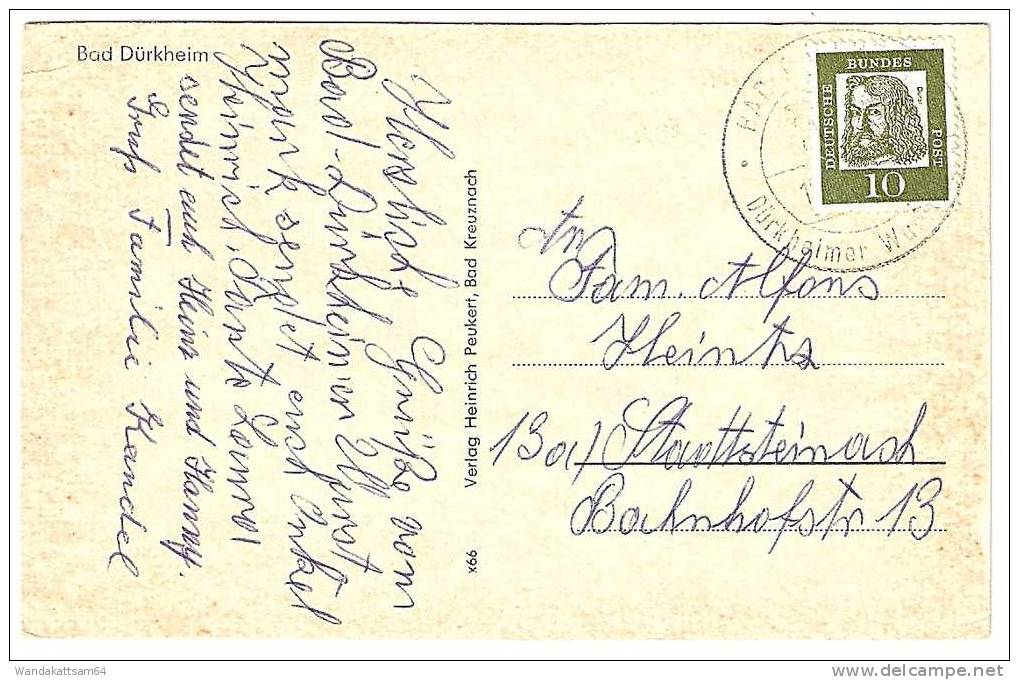 Bad Dürkheim
Herzliche Grüße vom
Bad-Dürkheimer Wurst
markt sendet euch Onkel
Heinrich, Tante
sendet euch Heinz und Hanny.
Gruß Familie Kandel
Verlag Heinrich Peukert, Bad Kreuznach
x66
DEUTSCHE
BUNDES
POST
10
BAD
Dürkheimer Wu
An
Fam. Alfons
Heintz
13a/ Stadtsteinach
Bahnhofstr 13
Wandakattsam64
delcampe.net